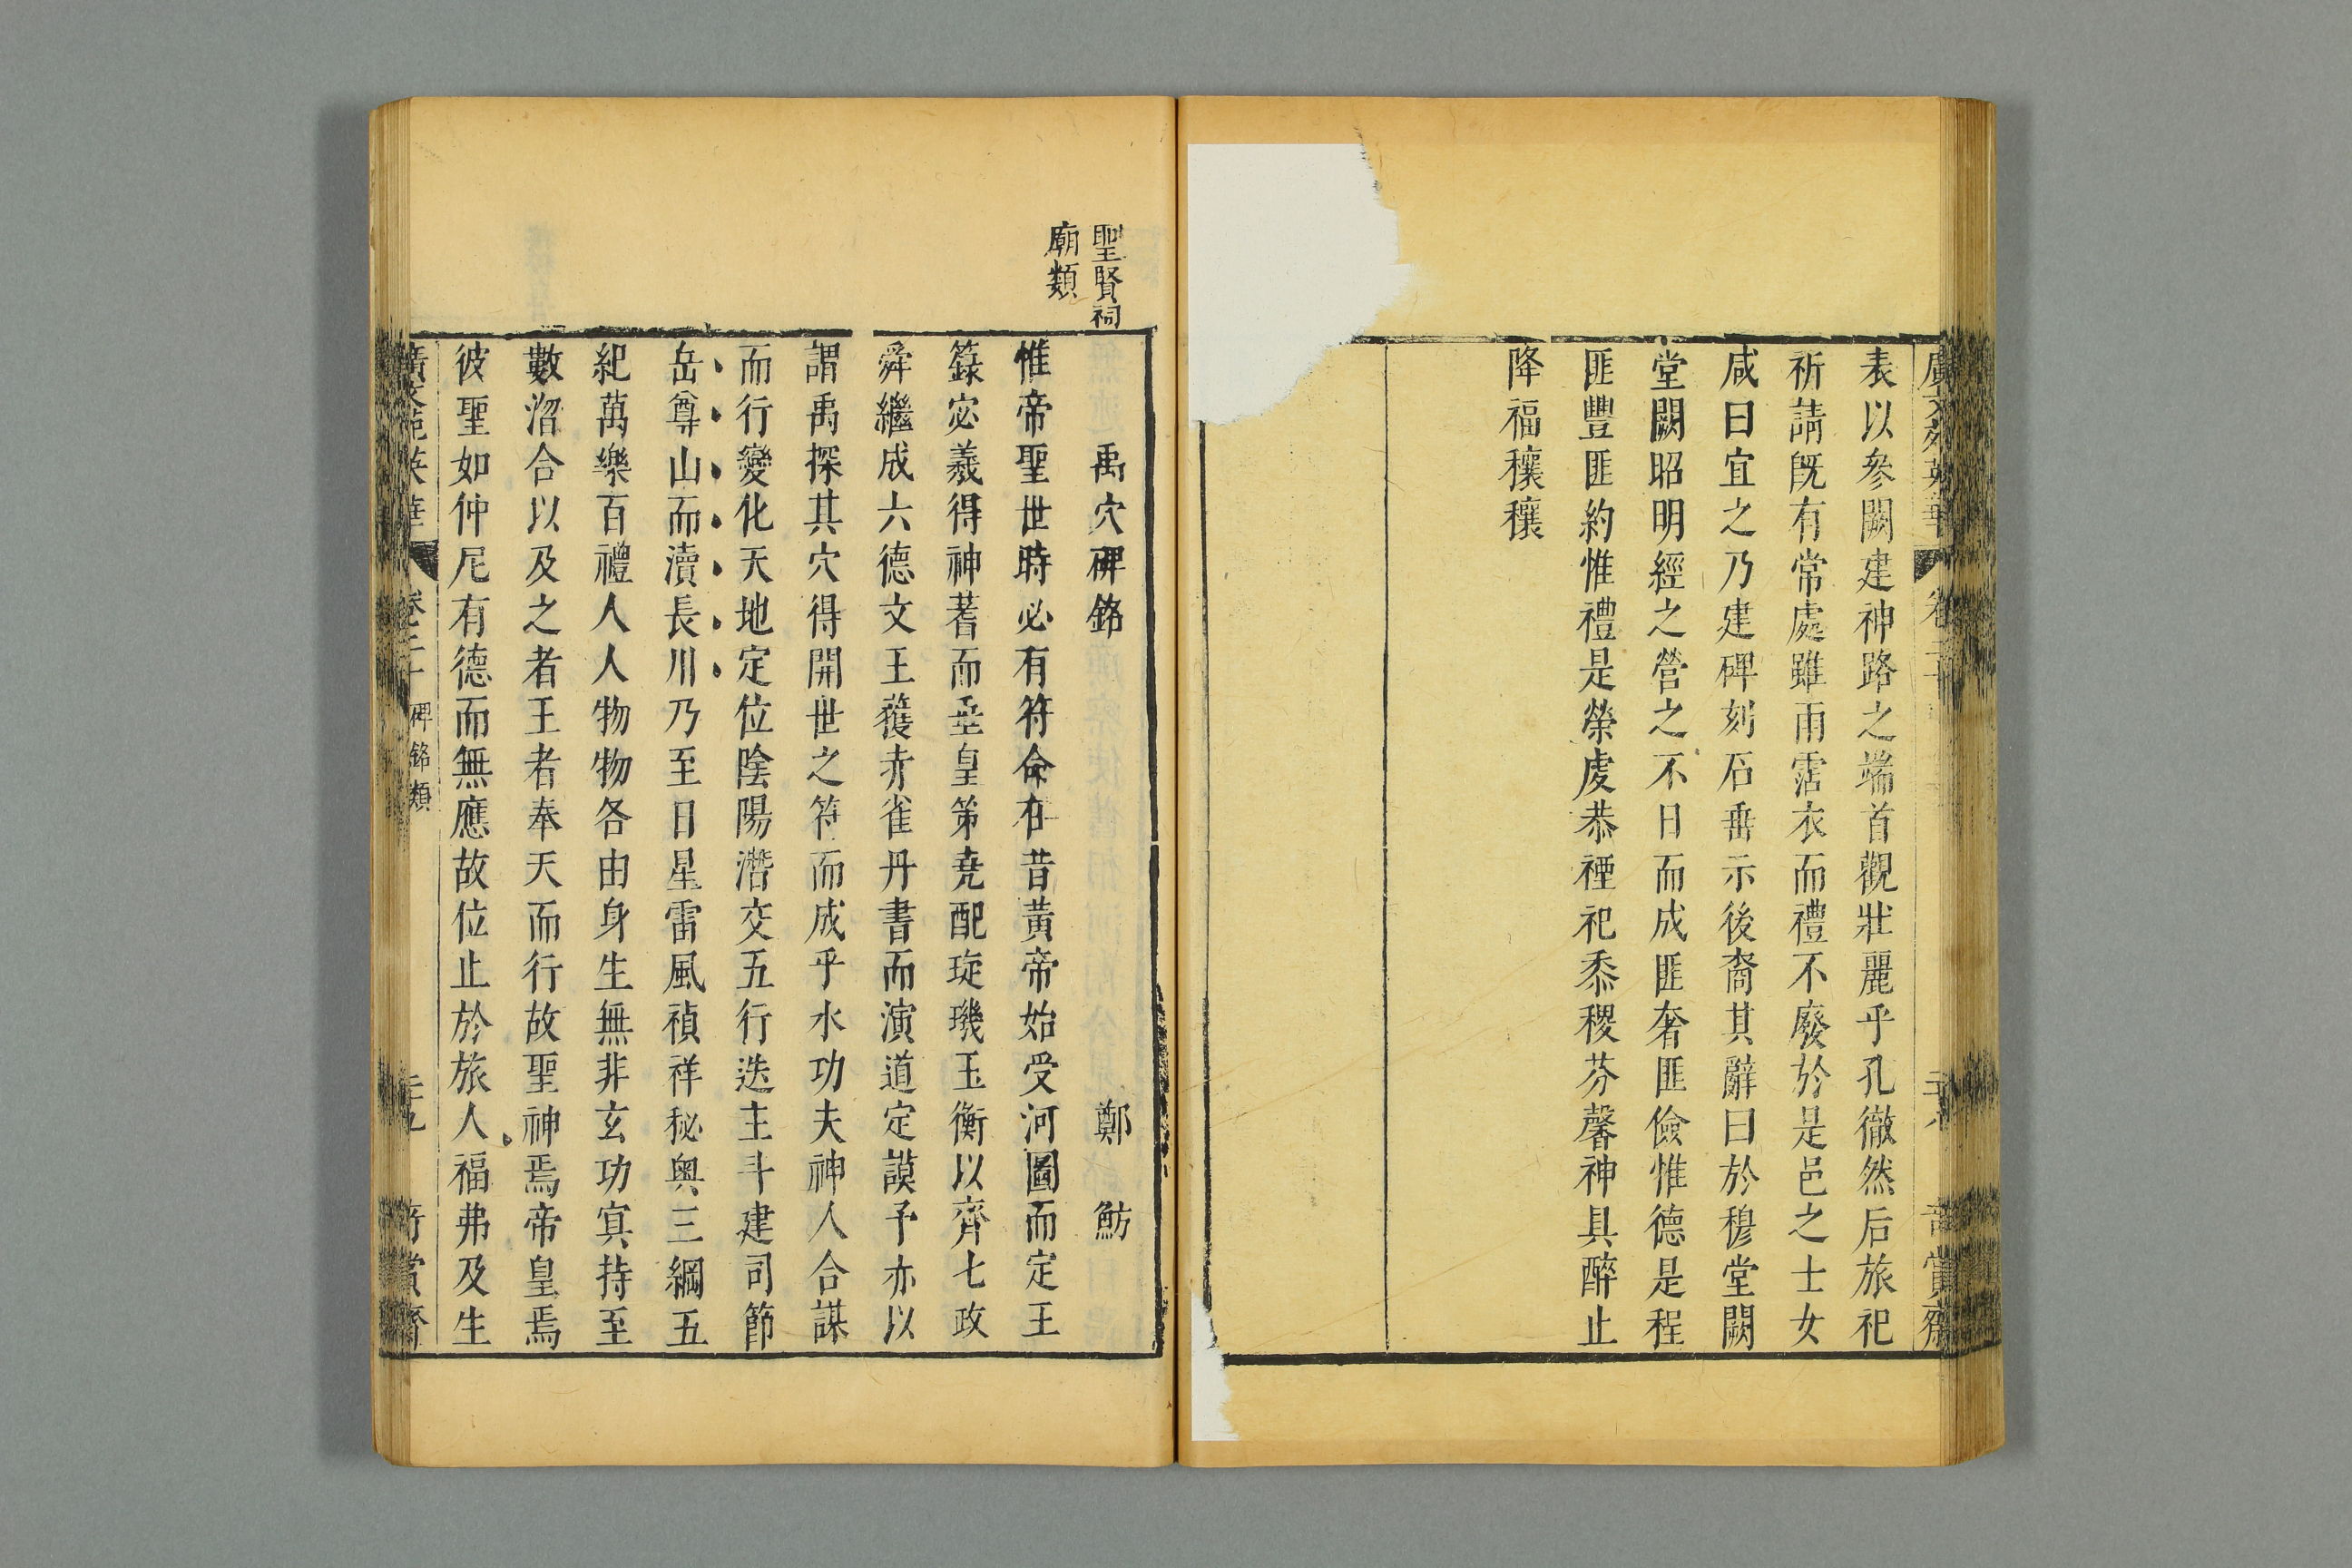 廣文苑英華 卷二十 二十八 奇賞齋
表以參闕建神路之端首觀壯麗乎孔徹然后旅祀
祈請既有常處雖雨霑衣而禮不廢於是邑之士女
咸曰宜之乃建碑刻石垂示後裔其辭曰於穆堂闕
堂闕昭明經之營之不日而成匪奢匪儉惟德是程
匪豐匪約惟禮是榮虔恭禋祀黍稷芬馨神具醉止
降福穰穰
聖賢祠
廟類
禹穴碑銘 鄭魴
惟帝聖世時必有符命在昔黃帝始受河圖而定王
籙宓羲得神蓍而垂皇策堯配琁璣玉衡以齊七政
舜繼成六德文王獲赤雀丹書而演道定謨予亦以
謂禹探其穴得開世之符而成乎水功夫神人合謀
而行變化天地定位陰陽潛交五行迭主斗建司節
岳尊山而瀆長川乃至日星雷風禎祥秘奧三綱五
紀萬樂百禮人人物物各由身生無非玄功冥持至
數沼合以及之者王者奉天而行故聖神焉帝皇焉
彼聖如仲尼有德而無應故位止於旅人福弗及生
廣文苑英華 卷二十 碑銘類 二十九 奇賞齋